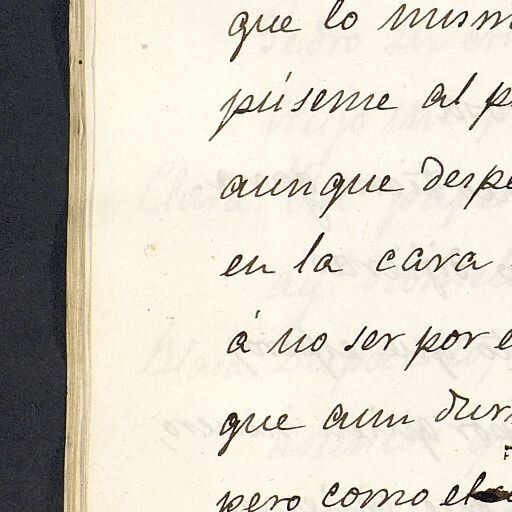 que lo mism
púseme al p
aunque despe
en la cara
á no ser por e
que aun dur
pero como el